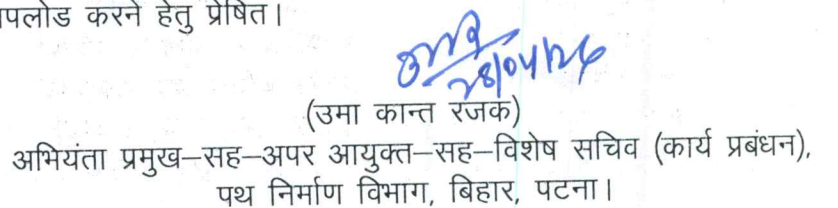 पलोड करने हेतु प्रेषित।
28/04/26
(उमा कान्त रजक)
अभियंता प्रमुख–सह–अपर आयुक्त–सह–विशेष सचिव (कार्य प्रबंधन),
पथ निर्माण विभाग, बिहार, पटना।